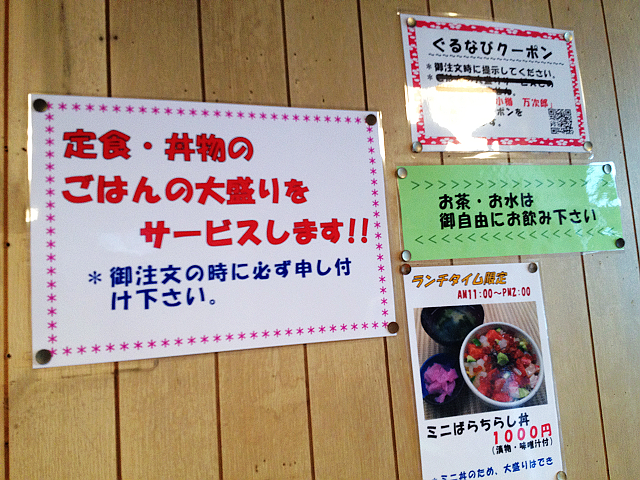 定食・丼物の
ごはんの大盛りを
サービスします!!
＊御注文の時に必ず申し付
け下さい。
ぐるなびクーポン
＊御注文時に提示してください。
小樽 万次郎
お茶・お水は
御自由にお飲み下さい
ランチタイム限定
AM11:00〜PM2:00
ミニばらちらし丼
1000円
(漬物・味噌汁付)
＊ミニ丼のため、大盛りはでき